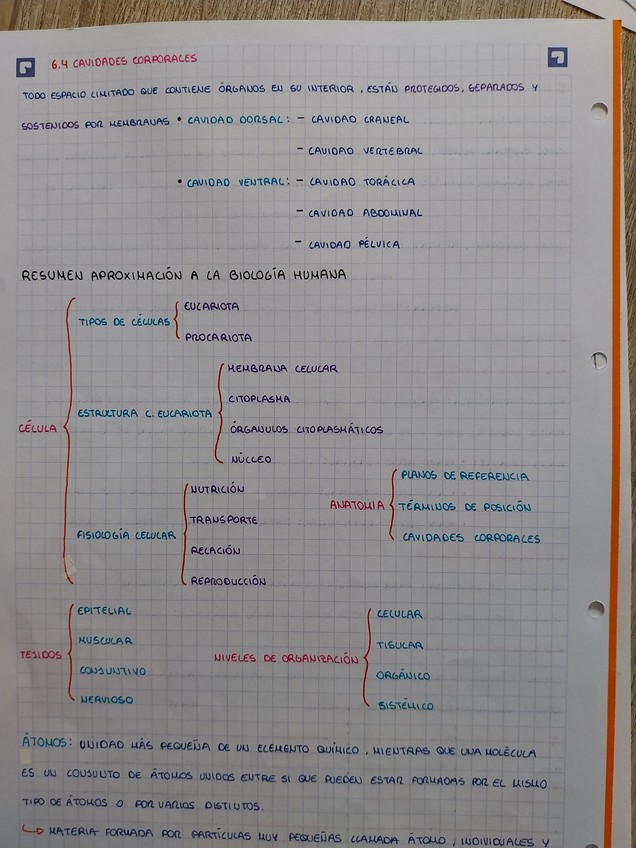 6.4 CAVIDADES CORPORALES
TODO ESPACIO LIMITADO QUE CONTIENE ÓRGANOS EN SU INTERIOR, ESTÁN PROTEGIDOS, SEPARADOS Y
SOSTENIDOS POR MEMBRANAS • CAVIDAD DORSAL: - CAVIDAD CRANEAL
- CAVIDAD VERTEBRAL
• CAVIDAD VENTRAL: - CAVIDAD TORÁCICA
- CAVIDAD ABDOMINAL
- CAVIDAD PÉLVICA
RESUMEN APROXIMACIÓN A LA BIOLOGÍA HUMANA
CÉLULA
TIPOS DE CÉLULAS
EUCARIOTA
PROCARIOTA
ESTRUCTURA C. EUCARIOTA
MEMBRANA CELULAR
CITOPLASMA
ÓRGANULOS CITOPLASMÁTICOS
NÚCLEO
FISIOLOGÍA CELULAR
NUTRICIÓN
TRANSPORTE
RELACIÓN
REPRODUCCIÓN
ANATOMIA
PLANOS DE REFERENCIA
TÉRMINOS DE POSICIÓN
CAVIDADES CORPORALES
TEJIDOS
EPITELIAL
MUSCULAR
CONJUNTIVO
NERVIOSO
NIVELES DE ORGANIZACIÓN
CELULAR
TISULAR
ORGÁNICO
SISTÉMICO
ÁTOMOS: UNIDAD MÁS PEQUEÑA DE UN ELEMENTO QUÍMICO, MIENTRAS QUE UNA MOLÉCULA
ES UN CONJUNTO DE ÁTOMOS UNIDOS ENTRE SI QUE PUEDEN ESTAR FORMADAS POR EL MISMO
TIPO DE ÁTOMOS O POR VARIOS DISTINTOS.
↳ MATERIA FORMADA POR PARTÍCULAS MUY PEQUEÑAS LLAMADA ÁTOMO, INDIVIDUALES Y